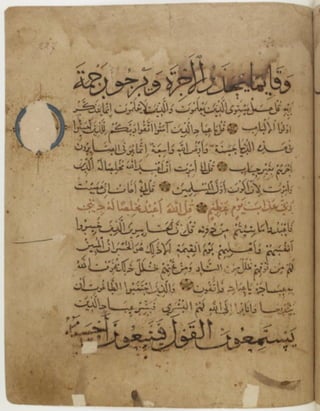 وقائما يحذر الآخرة ويرجو رحمة
ربه قل هل يستوي الذين يعلمون والذين لا يعلمون إنما يتذكر
أولوا الألباب قل يا عباد الذين آمنوا اتقوا ربكم للذين أحسنوا
في هذه الدنيا حسنة وأرض الله واسعة إنما يوفى الصابرون
أجرهم بغير حساب قل إني أمرت أن أعبد الله مخلصا له الدين
وأمرت لأن أكون أول المسلمين قل إني أخاف إن عصيت
ربي عذاب يوم عظيم قل الله أعبد مخلصا له ديني
فاعبدوا ما شئتم من دونه قل إن الخاسرين الذين خسروا
أنفسهم وأهليهم يوم القيمة ألا ذلك هو الخسران المبين
لهم من فوقهم ظلل من النار ومن تحتهم ظلل ذلك يخوف الله
به عباده يا عباد فاتقون والذين اجتنبوا الطاغوت أن
يعبدوها وأنابوا إلى الله لهم البشرى فبشر عباد الذين
يستمعون القول فيتبعون أحسنه